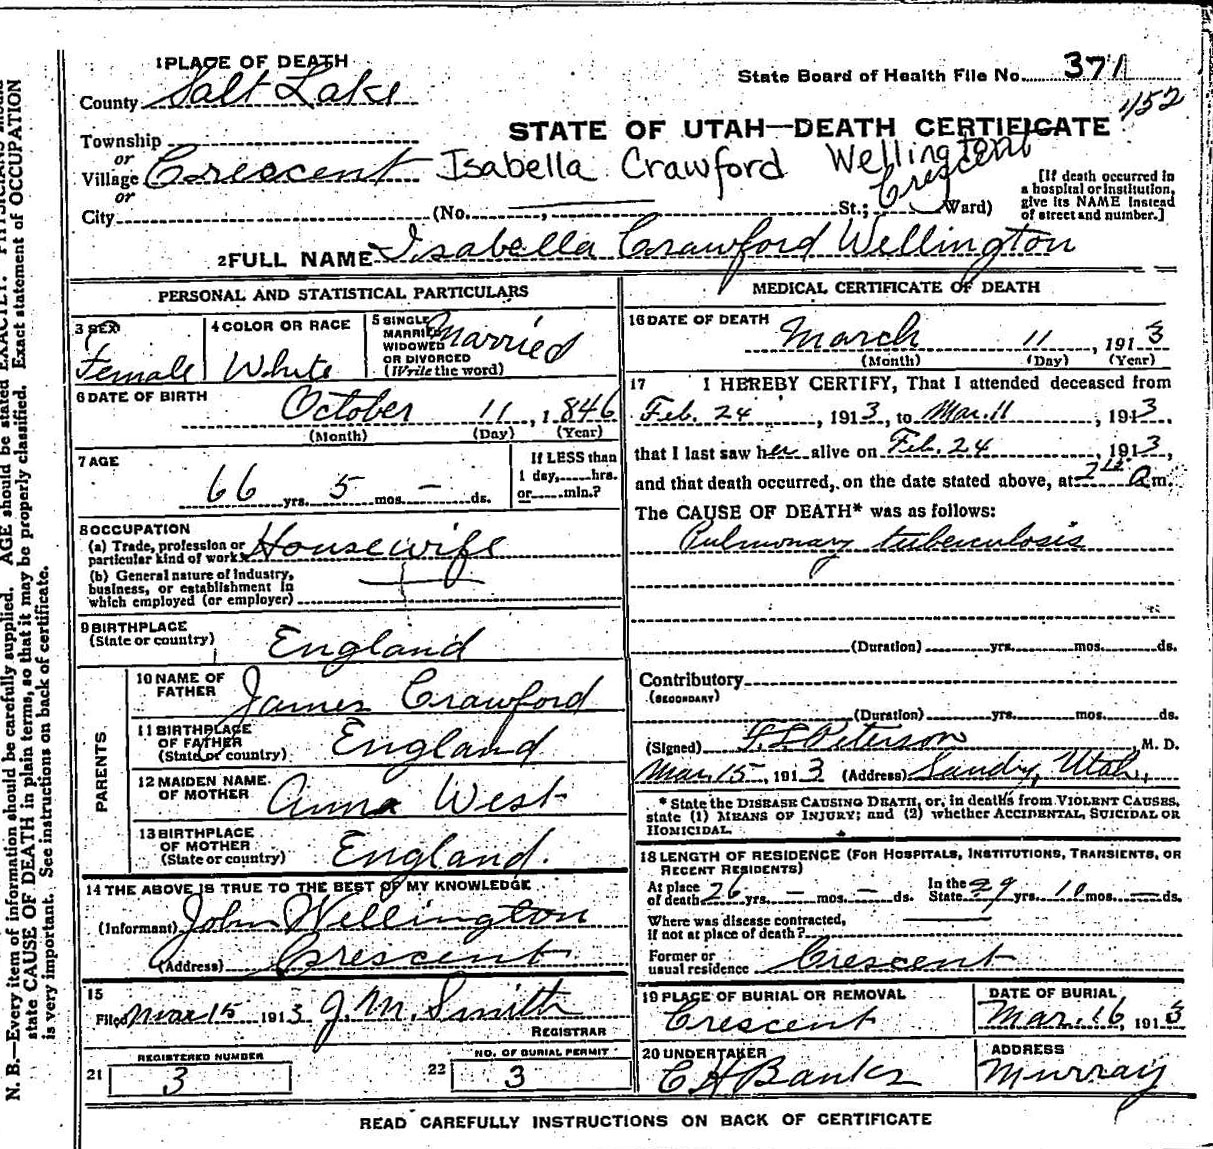 1 PLACE OF DEATH
County Salt Lake
State Board of Health File No. 371
452
Township
STATE OF UTAH—DEATH CERTIFICATE
or
Village Crescent Isabella Crawford Wellington
or
Crescent
City (No. , St.; Ward)
[If death occurred in
a hospital or institution,
give its NAME instead
of street and number.]
2 FULL NAME Isabella Crawford Wellington
PERSONAL AND STATISTICAL PARTICULARS
3 SEX
Female
4 COLOR OR RACE
White
5 SINGLE
MARRIED
WIDOWED
OR DIVORCED
(Write the word)
Married
6 DATE OF BIRTH
October 11, 1846
(Month) (Day) (Year)
7 AGE
66 yrs. 5 mos. – ds.
If LESS than
1 day, hrs.
or min.?
8 OCCUPATION
(a) Trade, profession or
particular kind of work Housewife
(b) General nature of Industry,
business, or establishment in
which employed (or employer)
9 BIRTHPLACE
(State or country) England
PARENTS
10 NAME OF
FATHER James Crawford
11 BIRTHPLACE
OF FATHER
(State or country) England
12 MAIDEN NAME
OF MOTHER Anna West
13 BIRTHPLACE
OF MOTHER
(State or country) England.
14 THE ABOVE IS TRUE TO THE BEST OF MY KNOWLEDGE
(Informant) John Wellington
(Address) Crescent
15
Filed Mar 15 1913 J. M. Smith
REGISTRAR
REGISTERED NUMBER
21 3
NO. OF BURIAL PERMIT
22 3
MEDICAL CERTIFICATE OF DEATH
16 DATE OF DEATH
March 11, 1913
(Month) (Day) (Year)
17 I HEREBY CERTIFY, That I attended deceased from
Feb. 24, 1913, to Mar. 11, 1913
that I last saw her alive on Feb. 24, 1913,
and that death occurred, on the date stated above, at 2 a m.
The CAUSE OF DEATH* was as follows:
Pulmonary tuberculosis
(Duration) yrs. mos. ds.
Contributory
(SECONDARY)
(Duration) yrs. mos. ds.
(Signed) Peterson M. D.
Mar. 15, 1913 (Address) Sandy, Utah,
* State the DISEASE CAUSING DEATH, or, in deaths from VIOLENT CAUSES,
state (1) MEANS OF INJURY; and (2) whether ACCIDENTAL, SUICIDAL OR
HOMICIDAL.
18 LENGTH OF RESIDENCE (FOR HOSPITALS, INSTITUTIONS, TRANSIENTS, OR
RECENT RESIDENTS)
At place
of death 26 yrs. – mos. – ds.
In the
State 29 yrs. 10 mos. – ds.
Where was disease contracted,
if not at place of death?
Former or
usual residence Crescent
19 PLACE OF BURIAL OR REMOVAL
Crescent
DATE OF BURIAL
Mar. 16, 1913
20 UNDERTAKER
C H Banks
ADDRESS
Murray
READ CAREFULLY INSTRUCTIONS ON BACK OF CERTIFICATE
N. B.—Every item of information should be carefully supplied. AGE should be stated EXACTLY. PHYSICIANS should
state CAUSE OF DEATH in plain terms, so that it may be properly classified. Exact statement of OCCUPATION
is very important. See instructions on back of certificate.